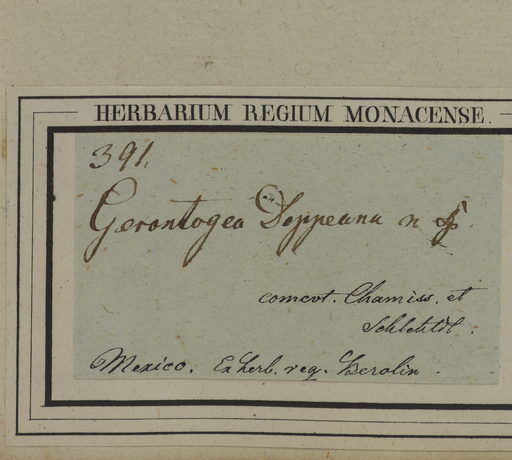 HERBARIUM REGIUM MONACENSE.
391.
Gerontogea Deppeana n sp.
comevt. Chamiss. et
Schlchtdl.
Mexico. Ex herb. reg. Berolin.